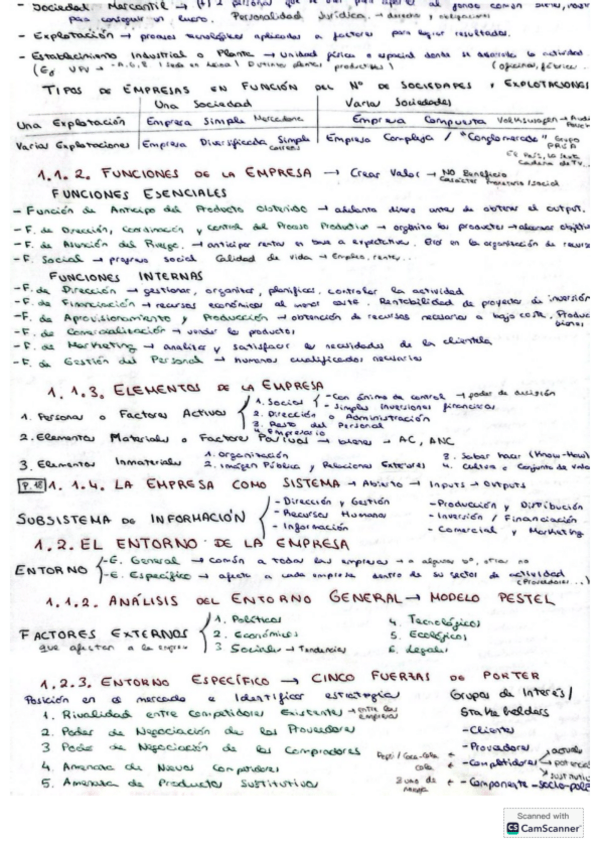 - Sociedad Mercantil → (+) 2 personas que se unen para aportar al fondo común
para conseguir un lucro. Personalidad Jurídica → derechos y obligaciones
- Explotación → proceso tecnológico aplicado a factores para lograr resultados.
- Establecimiento Industrial o Planta → Unidad física o espacial donde se desarrolla la actividad
(Ej UPV → (oficina, fábrica...
TIPOS DE EMPRESAS EN FUNCIÓN DEL Nº DE SOCIEDADES Y EXPLOTACIONES
Una Sociedad Varias Sociedades
Una Explotación Empresa Simple Mercadona Empresa Compuesta Volkswagen → Audi
Varias Explotaciones Empresa Diversificada Simple Correos Empresa Compleja / "Conglomerado" Grupo PRISA
El País, la Sexta
Cadena de TV...
1.1.2. FUNCIONES DE LA EMPRESA → Crear Valor → NO Beneficio
FUNCIONES ESENCIALES
- Función de Anticipo del Producto Obtenido → adelanta dinero antes de obtener el output.
- F. de Dirección, Coordinación y control del Proceso Productivo → organiza los productos → alcanzar objetivo
- F. de Asunción del Riesgo → anticipar rentas en base a expectativas. en la organización de recursos
- F. Social → progreso social Calidad de vida → Empleo, renta...
FUNCIONES INTERNAS
- F. de Dirección → gestionar, organizar, planificar, controlar la actividad
- F. de Financiación → recursos económicos al menor coste. Rentabilidad de proyectos de inversión
- F. de Aprovisionamiento y Producción → obtención de recursos necesarios a bajo coste. Produc
bienes
- F. de Comercialización → vender los productos
- F. de Marketing → analiza y satisface las necesidades de la clientela
- F. de Gestión del Personal → humanos cualificados necesarios
1.1.3. ELEMENTOS DE LA EMPRESA
1. Personas o Factores Activos
1. Socios - Con ánimo de control → poder de decisión
- Simples Inversiones financieras
2. Dirección o Administración
3. Resto del Personal
4. Empresario
2. Elementos Materiales o Factores Pasivos → bienes → AC, ANC
3. Elementos Inmateriales
1. Organización 3. Saber hacer (Know-How)
2. Imagen Pública y Relaciones Exteriores 4. Cultura o Conjunto de valo
P.18 1.1.4. LA EMPRESA COMO SISTEMA → Abierto → Inputs → Outputs
SUBSISTEMA DE INFORMACIÓN
- Dirección y Gestión - Producción y Distribución
- Recursos Humanos - Inversión / Financiación
- Información - Comercial y Marketing
1.2. EL ENTORNO DE LA EMPRESA
ENTORNO
- E. General → común a todas las empresas → a algunas sí, otras no
- E. Específico → afecta a cada empresa dentro de su sector de actividad
(Proveedores...)
1.1.2. ANÁLISIS DEL ENTORNO GENERAL → MODELO PESTEL
FACTORES EXTERNOS
que afectan a la empresa
1. Políticos 4. Tecnológicos
2. Económicos 5. Ecológicos
3 Sociales → Tendencias 6. Legales
1.2.3. ENTORNO ESPECÍFICO → CINCO FUERZAS DE PORTER
Posición en el mercado e Identificar estrategias Grupos de Interés/
1. Rivalidad entre Competidores Existentes → entre las empresas Stakeholders
2. Poder de Negociación de los Proveedores - Clientes
3 Poder de Negociación de los Compradores - Proveedores
4. Amenaza de Nuevos Competidores Pepsi / Coca-Cola - Competidores → actuales
potencial
sustitutivo
5. Amenaza de Productos Sustitutivos - Componente socio-polí
Scanned with
CS CamScanner